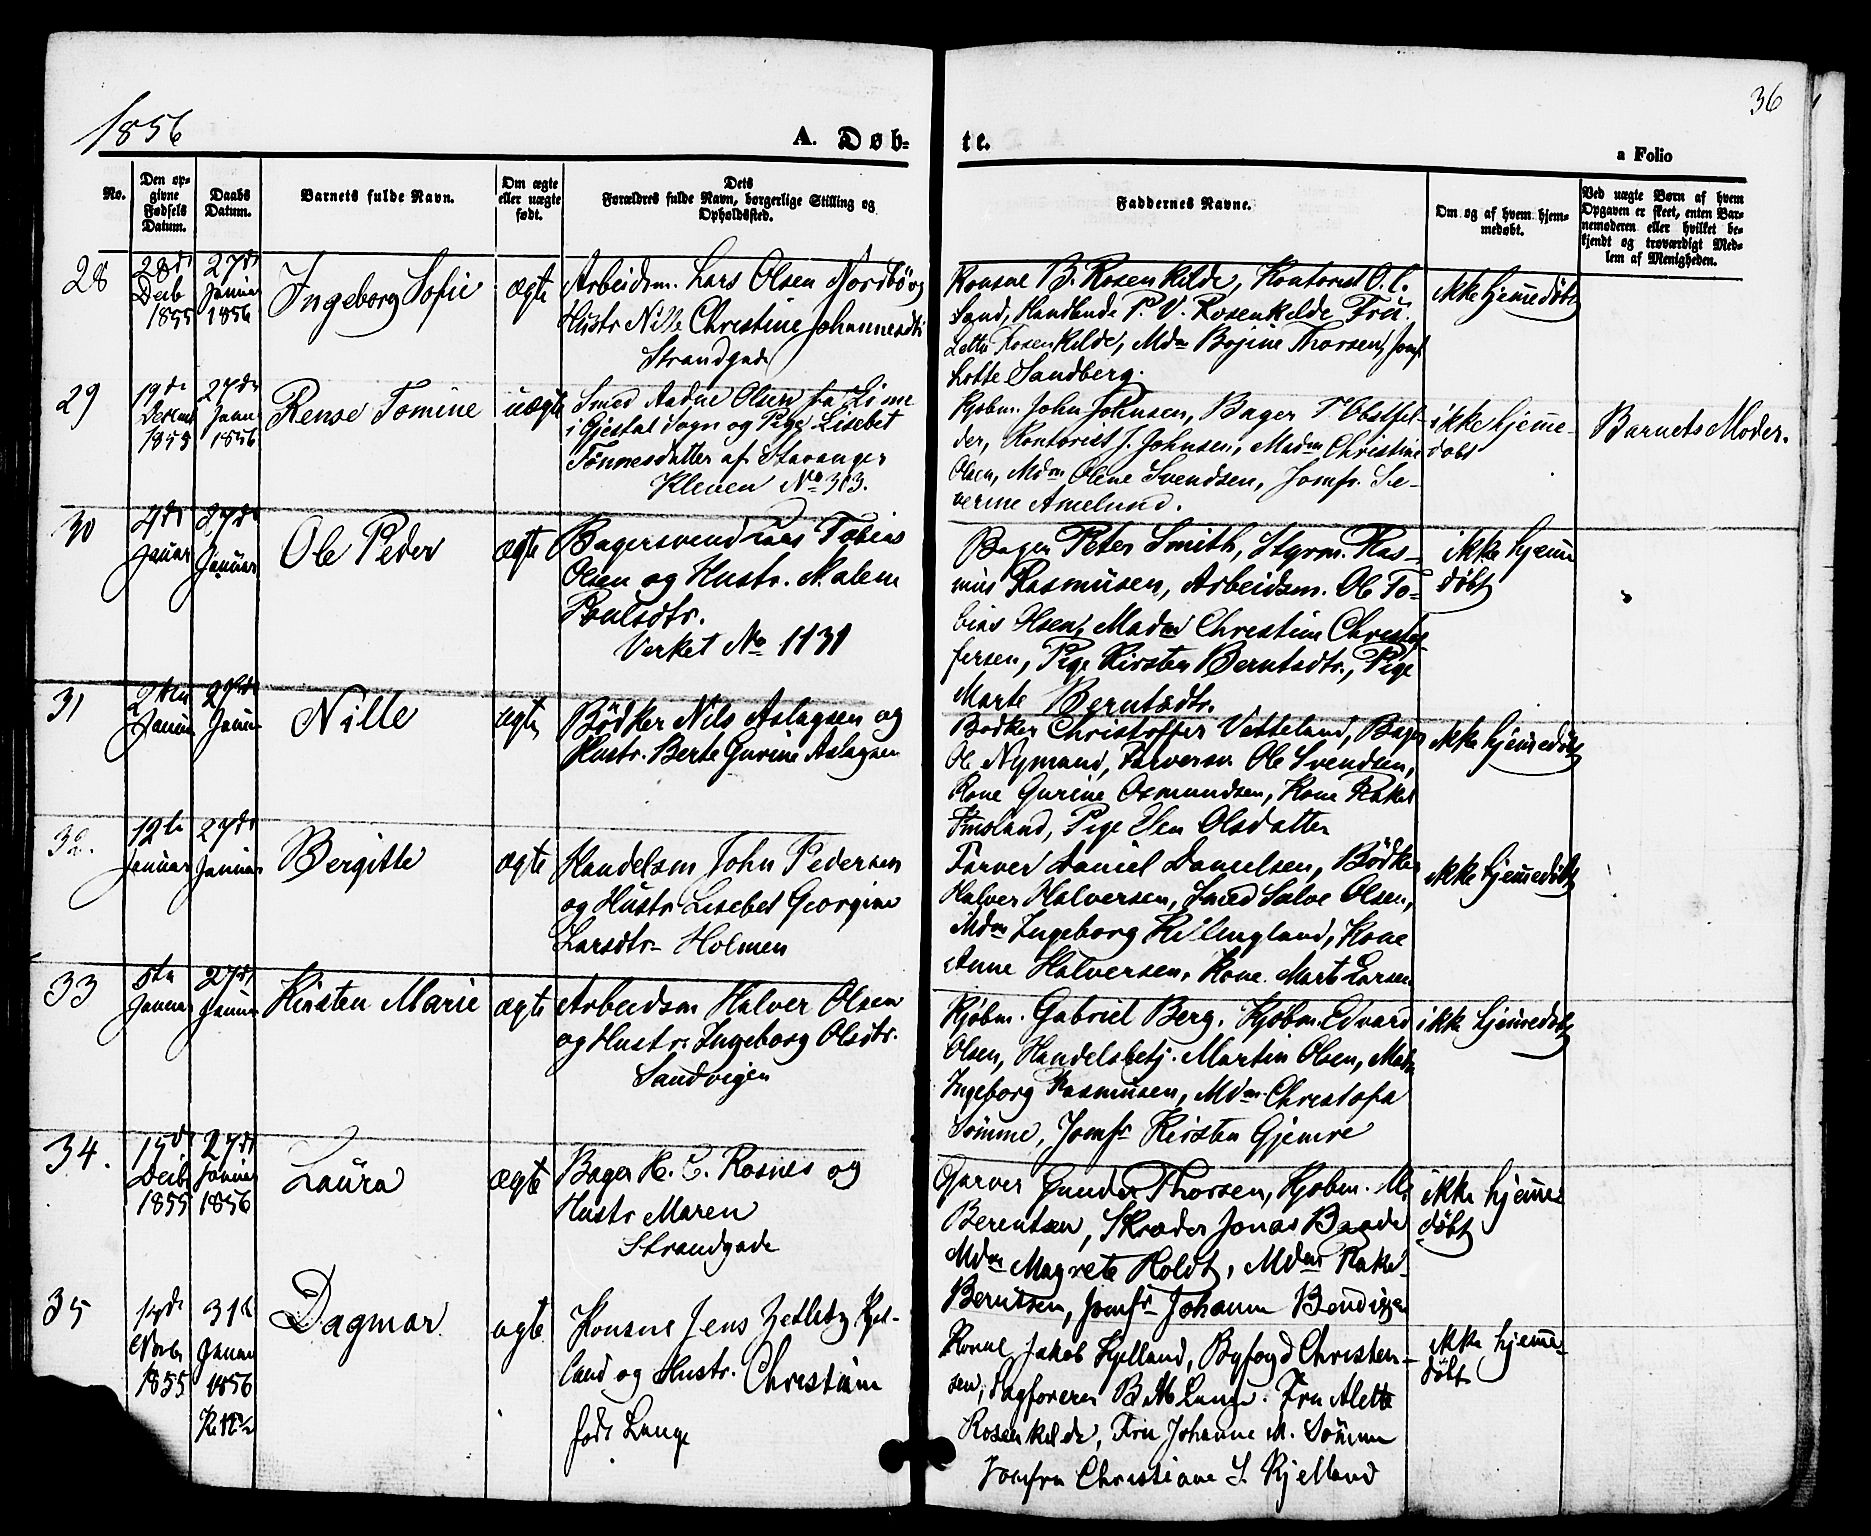 1856
A. Døb-
No.
Den op-
givne
Fødsels
Datum.
Daabs
Datum.
Barnets fulde Navn.
Om ægte
eller uægte
født.
Dets
Forældres fulde Navn, borgerlige Stilling og
Opholdssted.
28
28de
Decb
1855
27de
Januar
1856
Ingeborg Sofie
ægte
Arbeidsm. Lars Olsen Nordbø og
Hustr Nille Christine Johannesdtr
Strandgade
29
19de
1855
27de
Janu
1856
Rense Tomine
uægte
Smed Aadne Olsen fra Lime
i Gjestal Sogn og Pige Lisebet
Tønnesdatter af Stavanger
Kleven No 313.
30
4de
Januar
27de
Januar
Ole Peder
ægte
Bagersvend Lars Tobias
Olsen og Hustr. Malene
Poulsdtr.
Verket No 1131
31
2den
Januar
27de
Januar
Nille
ægte
Bødker Nils Aslagsen og
Hustr. Berte Gurine Aslagsen
32.
12te
Januar
27de
Januar
Bergitte
ægte
Handelsm John Pedersen
og Hustr Lisebet Georgine
Larsdtr Holmen
33
5te
Januar
27de
Januar
Kirsten Marie
ægte
Arbeidsm Halver Olsen
og Hustr. Ingeborg Olsdtr.
Sandvigen
34.
15de
Decbr
1855
27de
Januar
1856
Laura
ægte
Bager H. C. Rosnes og
Hustr Maren
Strandgade
35
Novbr
1855
31te
Januar
1856
Dagmar
ægte
Konsul Jens Zetlitz Kjel-
land og Hustr. Christiane
født Lange
36
te.
a Folio
Faddernes Navne.
Om og af hvem hjem-
medøbt.
Ved uægte Børn af hvem
Opgaven er skeet, enten Bar-
nemoderen eller hvilket be-
kjendt og troværdigt Med-
lem af Menigheden.
Konsul B. Rosenkilde, Kontorist O. C.
Sand, Handlende P. V. Rosenkilde Fru
Rosenkilde, Mdm Bojine Thorsen, Jomf
Lotte Sandberg.
ikke hjemmedøbt
Kjøbm. John Johnsen, Bager T Obstfel-
der, Kontorist J. Johnsen, Madm Christine
Olsen, Mdm Olene Svendsen, Jomfr. Se-
verine Amelund.
ikke hjemme-
døbt
Barnets Moder.
Bager Peter Smith, Styrm. Ras-
mus Rasmusen, Arbeidsm. Ole To-
bias Olsen, Madm Christine Christof-
fersen, Pige Kirsten Berntsdtr., Pige
Marte Berntsdtr.
ikke hjemme
døbt
Bødker Christoffer Vetteland, Bager
Ole Nymand, Farversv. Ole Svendsen,
Kone Gurine Osmundsen, Kone Rakel
Imsland, Pige Elen Olsdatter
ikke hjemmedøbt
Farver Daniel Danielsen, Bødker
Halver Halversen, Smed Salve Olsen,
Mdm Ingeborg Hillingland, Kone
Anne Halversen, Kone Marte Larsen
ikke hjemmedøbt
Kjøbm. Gabriel Berg, Kjøbm. Edvard
Olsen, Handelsbetj. Martin Olsen, Mdm
Ingeborg Rasmusen, Mdm Christofa
Sømme, Jomfr Kirsten Gjemre
ikke hjemmedøbt
Garver Gunder Thorsen, Kjøbm. M.
Berentsen, Skræder Jonas Baade
Mdm Magrete Holdt, Mdm Rakel
Berntsen, Jomfr Johanne Bendixen
ikke hjemme
døbt
Konsul Jakob Kjelland, Byfogd Christen-
sen, Sagfører B. M Lange. Fru Alette
Rosenkilde, Fru Johanne M. Sømme
Jomfru Christiane S. Kjelland
ikke hjemme-
døbt